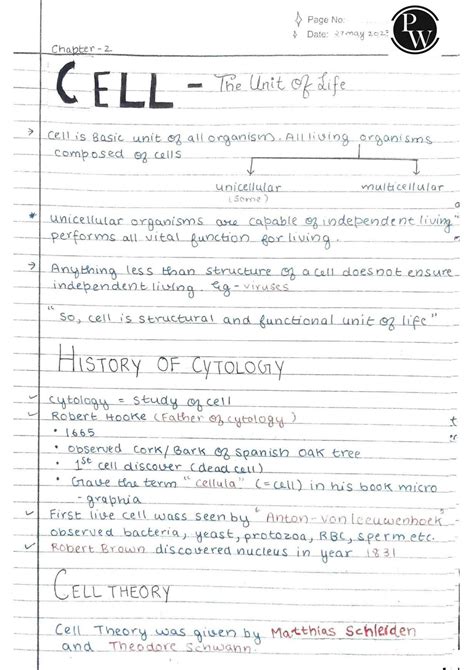 Page No:
Date: 27 may 2023
PW
Chapter-2
CELL - The Unit Of Life
→ Cell is Basic unit of all organism. All living organisms
composed of cells
unicellular multicellular
(some)
* unicellular organisms are capable of independent living"
performs all vital function for living.
→ Anything less than structure of a cell doesnot ensure
independent living. Eg- viruses
"So, cell is structural and functional unit of life"
HISTORY OF CYTOLOGY
✓ cytology = study of cell
✓ Robert Hooke (Father of cytology)
• 1665
• observed Cork/Bark of spanish oak tree
• 1st cell discover (dead cell)
• Gave the term "cellula" (=cell) in his book micro
-graphia
✓ First live cell wass seen by "Anton-von leeuwenhoek"
observed bacteria, yeast, protozoa, RBC, sperm etc.
✓ Robert Brown discovered nucleus in year 1831
CELL THEORY
Cell Theory was given by Matthias Schleiden
and Theodore Schwann